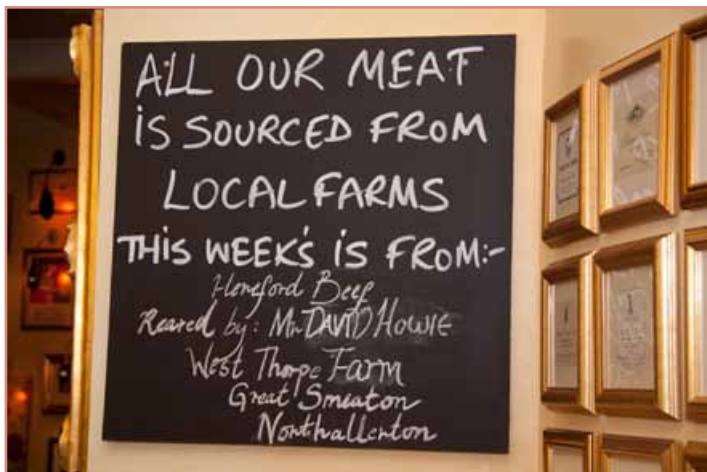 ALL OUR MEAT
iS SOURCED FROM
LOCAL FARMS
THIS WEEK'S IS FROM:-
Hereford Beef
Reared by: Mr DAVID HOWIE
West Thorpe Farm
Great Smeaton
Northallerton